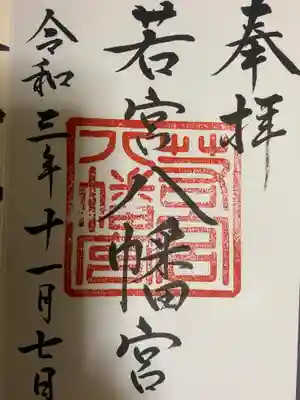 奉拝
若宮八幡宮
若宮
八幡宮
令和三年十一月七日